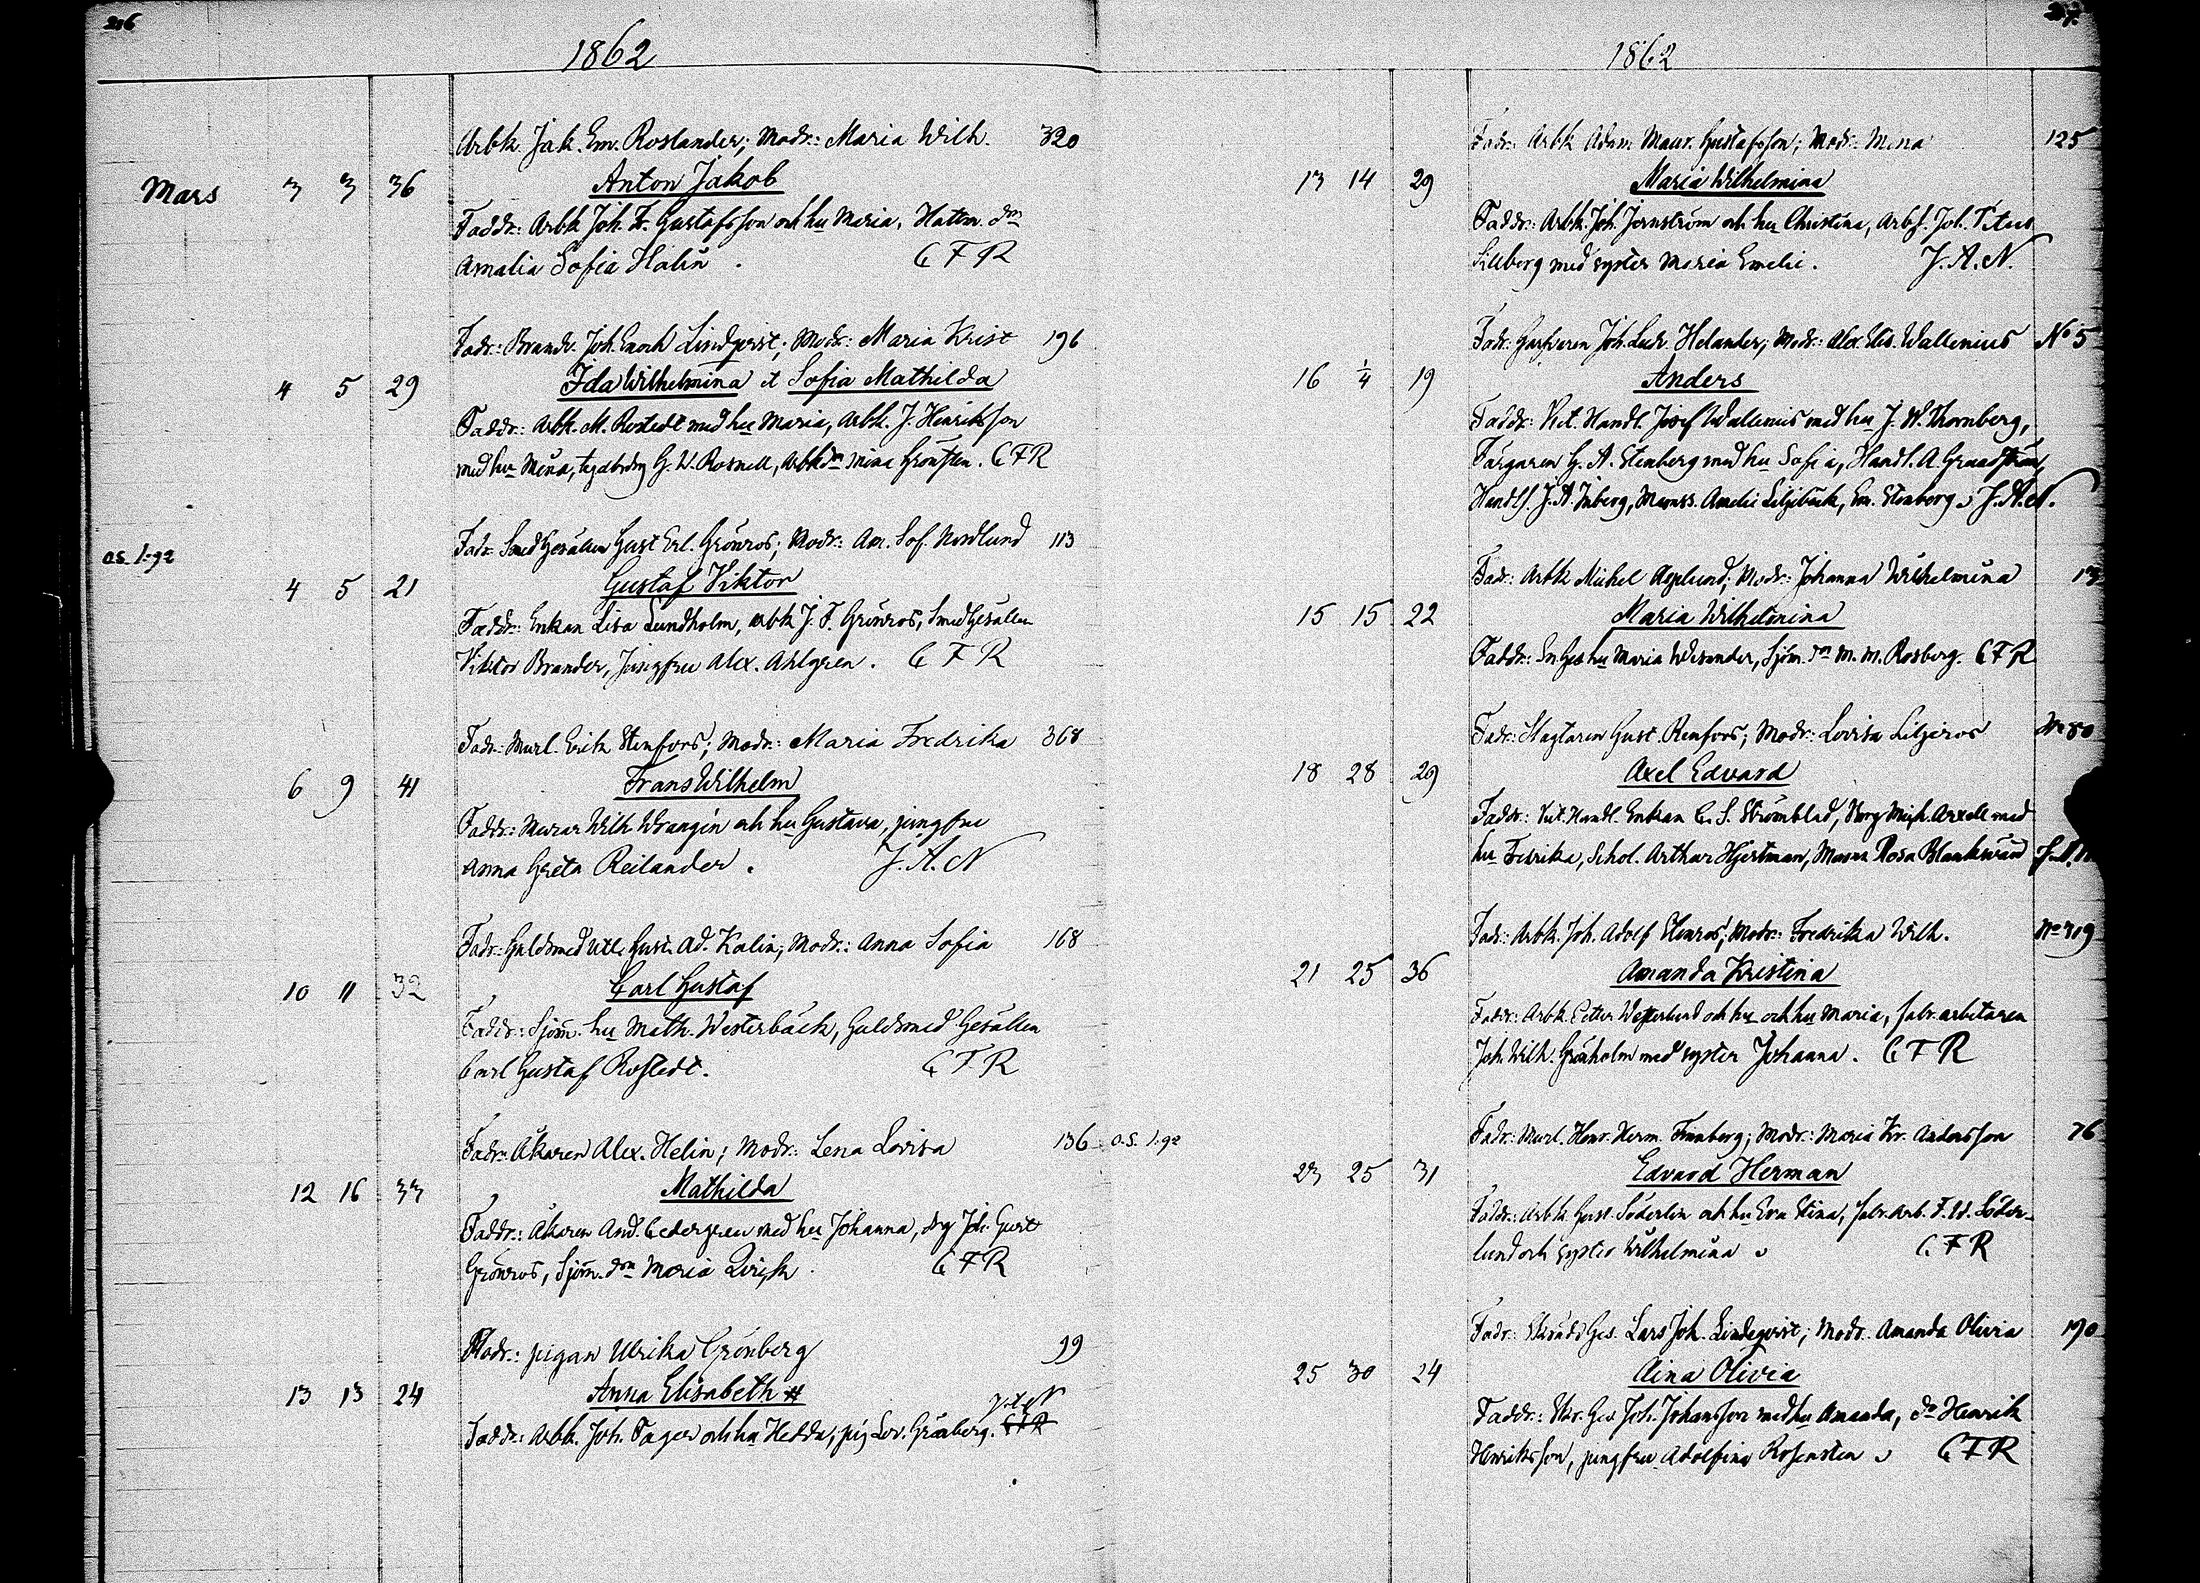 216
1862
Arbk Jak. Em. Roslander; Modr.: Maria Wilh. 320
Mars 3 3 36 Anton Jakob
Faddr.: Arbk Joh. Fr. Gustafsson och hu Maria, Hattm. dn
Amalia Sofia Halin. C F R
Fadr.: Brandv. Joh. Enoch Lindqvist; Modr.: Maria Krist 196
4 5 29 Ida Wilhelmina et Sofia Mathilda
Faddr.: Arbk. M. Rostedt med hu Maria, Arbk. J. Henriksson
med hu Mina, G. W. Rosnell, Arbk dn Mina Grönsten. C F R
Fadr. Smed Gesällen Gust. Erl. Grönros; Modr.: An. Sof. Nordlund 113
as. 1-92
4 5 21 Gustaf Viktor
Faddr.: Enkan Lisa Lundholm, arbk J. F. Grönros, Smed Gesällen
Viktor Brander, Jungfru Alex. Ahlgren. C F R
Fadr.: Murl. Erik Stenfors; Modr.: Maria Fredrika 368
6 9 41 Frans Wilhelm
Faddr.: Murar Wilh. Wrangén och hu Gustava, jungfru
Anna Greta Reilander. J. A. N
Fadr.: Guldsmed Gust. Ad. Kalin; Modr.: Anna Sofia 168
10 11 32 Carl Gustaf
Faddr.: Sjöm. hu Math. Westerback, Guldsmed Gesällen
Carl Gustaf Rostedt. C F R
Fadr. Åkaren Alex. Helin; Modr.: Lena Lovisa 136
12 16 33 Mathilda
Faddr.: Åkaren And. Cedergren med hu Johanna, drg Joh. Gust
Grönros, Sjöm. dn Maria Qvist. C F R
Modr.: pigan Ulrika Grönberg 99
13 13 24 Anna Elisabeth #
J. A. N
Faddr.: Arbk. Joh. Fager och hu Hedda, pig Lov. Grönberg. C F R
1862
Fadr.: Arbk Adam Maur. Gustafsson; Modr.: Mina 125
13 14 29 Maria Wilhelmina
Faddr.: Arbk. Joh. Jernström och hu Christina, Arbf. Joh. Titus
Silberg med syster Maria Emelie. J. A. N.
Fadr. Garfvaren Joh. Ludv. Helander; Modr.: Alex. Wallenius No 5
16 1/4 19 Anders
Faddr.: Vict. Handl. Josef Wallenius med hu J. W. Thornberg,
Färgaren G. A. Stenberg med hu Sofia, Handl. A. Grandström,
Handlf. J. A. Inberg, Mamss. Amelie Liljebäck, Em. Stenberg J. A. N.
Fadr.: Arbk Mickel Asplund; Modr.: Johanna Wilhelmina 13
15 15 22 Maria Wilhelmina
Faddr.: hu Maria Wesander, Sjöm. dn M. M. Rosberg. C F R
Fadr.: Slagtaren Gust. Renfors; Modr.: Lovisa Liljeros No 80
18 28 29 Axel Edvard
Faddr.: Vict. Handl. Enkan C. S. Strömblad, Borg. Mich. Axell med
hu Fredrika, Schol. Arthur Hjertman, Mams Rosa Blankvard J. A.
Fadr.: Arbk. Joh. Adolf Stenros; Modr.: Fredrika Wilh. No 319
21 25 36 Amanda Kristina
Faddr.: Arbk. Petter Westerlund och hu och hu Maria, fabr. arbetaren
Joh. Wilh. Grönholm med syster Johanna. C F R
Fadr.: Murl. Henr. Herm. Fremberg; Modr.: Maria Kr. Andersson 76
o.s. 1-92
23 25 31 Edvard Herman
Faddr.: Arbk. Gust. Söderlin och hu Eva Stina, fabr. Arb. F. Ed. Söder-
lund och syster Wilhelmina C F R
Fadr.: Skrädd Ges. Lars Joh. Lindeqvist; Modr. Amanda Olivia 190
25 30 24 Aina Olivia
Faddr.: Skr. Ges. Joh. Johansson med hu Amanda, do Henrik
Henriksson, jungfru Adolfina Rosensten C F R